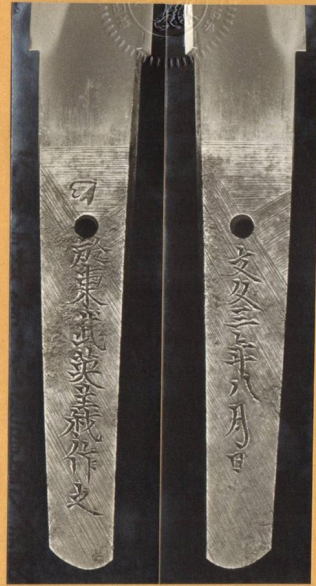 於東武英義作之
文久三年八月日